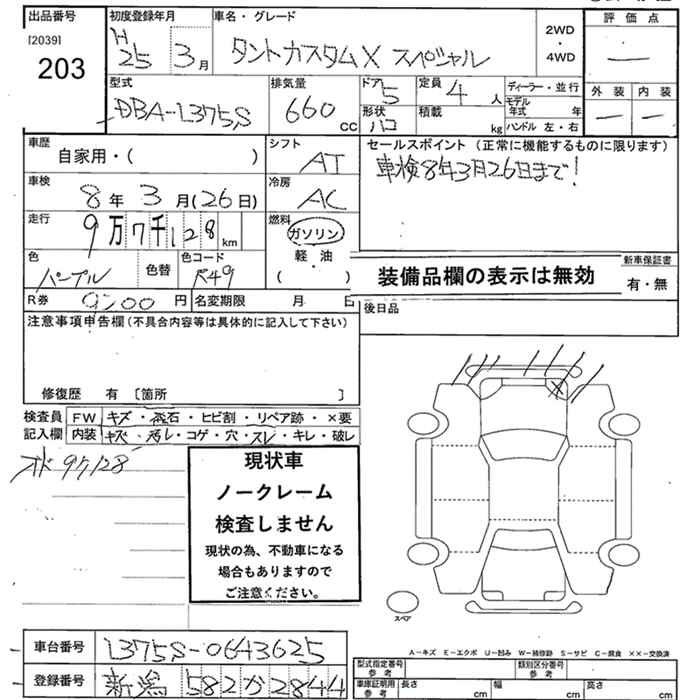 出品番号
[2039]
203
初度登録年月
H
25 3月
車名・グレード
タントカスタムX スペシャル
2WD
・
4WD
評価点
—
外装 内装
— —
型式
DBA-L375S
排気量
660
CC
ドア
5
形状
ハコ
定員
4人
積載
kg
ディーラー・並行
モデル年式 年
ハンドル 左・右
車歴
自家用・( )
シフト
AT
セールスポイント (正常に機能するものに限ります)
車検8年3月26日まで!
車検
8年3月(26日)
冷房
AC
走行
9万7千128km
燃料
ガソリン
軽油
( )
色
パープル
色替
色コード
装備品欄の表示は無効
新車保証書
有・無
R券
円
名変期限 月 日
後日品
注意事項申告欄(不具合内容等は具体的に記入して下さい)
修復歴 有 〔箇所 〕
検査員
記入欄
FW キズ・飛石・ヒビ割・リペア跡・×要
内装 キズ・汚レ・コゲ・穴・スレ・キレ・破レ
オド 97128
現状車
ノークレーム
検査しません
現状の為、不動車になる
場合もありますので
ご注意ください。
X
スペア
A-キズ E-エクボ U-凹み W-補修跡 S-サビ C-腐食 ××-交換済
車台番号
L375S-0643625
登録番号
新潟 582か2844
型式指定番号
参考
類別区分番号
参考
車庫証明用
参考
長さ cm
幅 cm
高さ cm